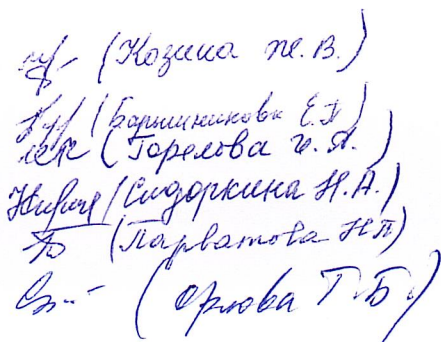 (Козина Т.В.)
(Барышникова Е.П)
(Горелова И.А.)
(Сидоркина Н.А.)
(Парватова Н.П)
(Орлова Т.Б.)